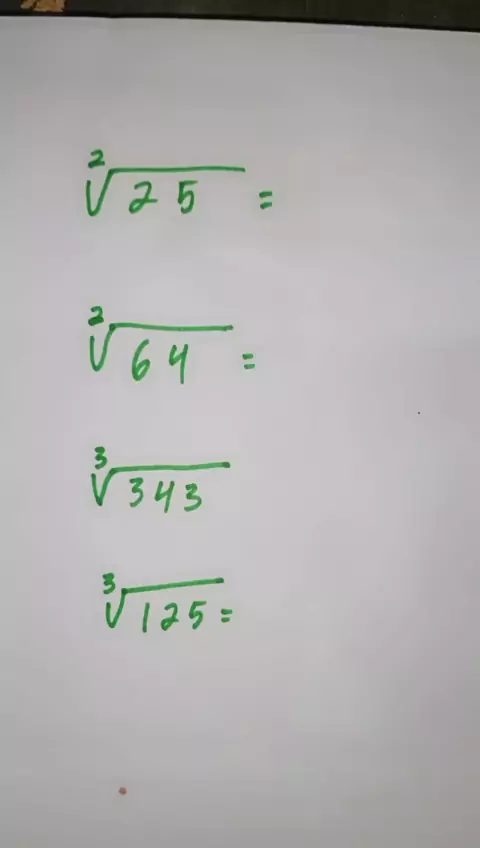 ²√25 =
²√64 =
³√343
³√125 =